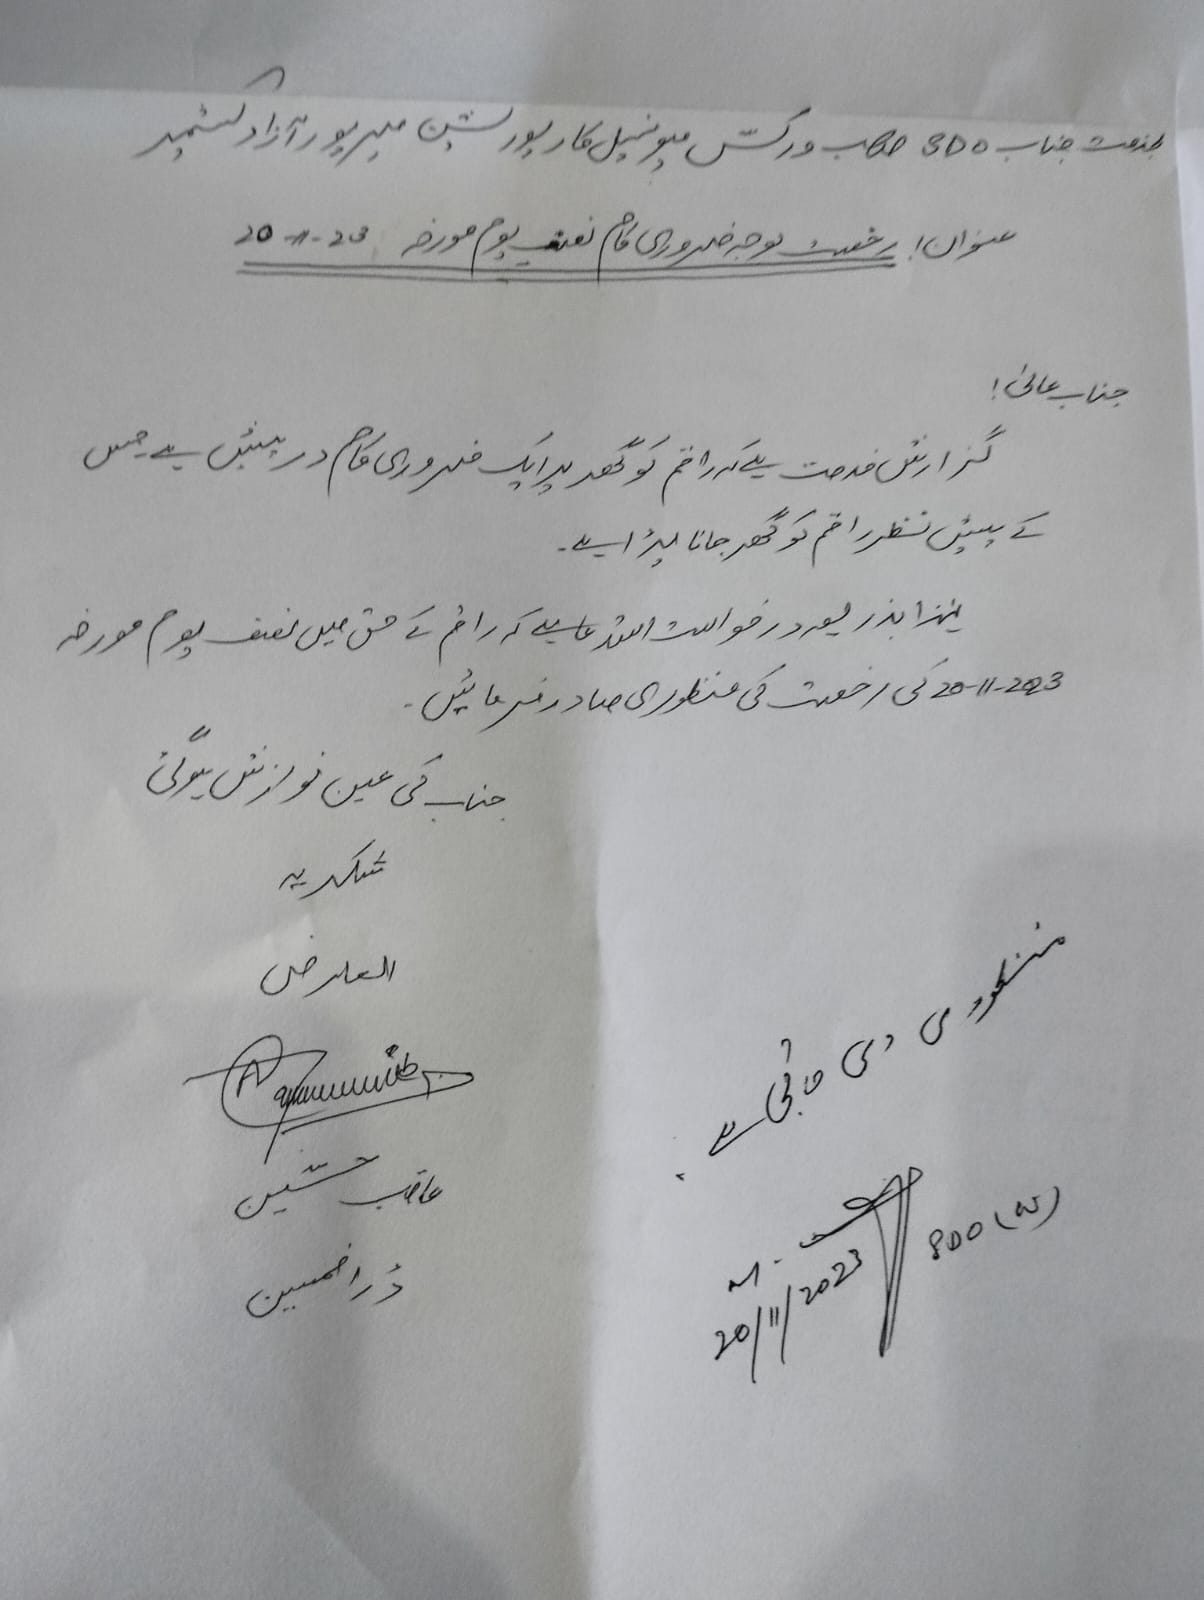 بخدمت جناب SDO صاحب ورکس میونسپل کارپوریشن میرپور آزاد کشمیر
عنوان! رخصت بوجہ ضروری کام نصف یوم مورخہ 20-11-23
جناب عالی!
گزارش خدمت ہے کہ راقم کو گھر پر ایک ضروری کام درپیش ہے جس
کے پیش نظر راقم کو گھر جانا پڑا ہے۔
لہٰذا بذریعہ درخواست استدعا ہے کہ راقم کے حق میں نصف یوم مورخہ
20-11-2023 کی رخصت کی منظوری صادر فرمائیں۔
جناب کی عین نوازش ہوگی
شکریہ
العارض
عاقب حسین
ڈرافٹسمین
منظوری دی جاتی ہے۔
SDO (W)
20/11/2023